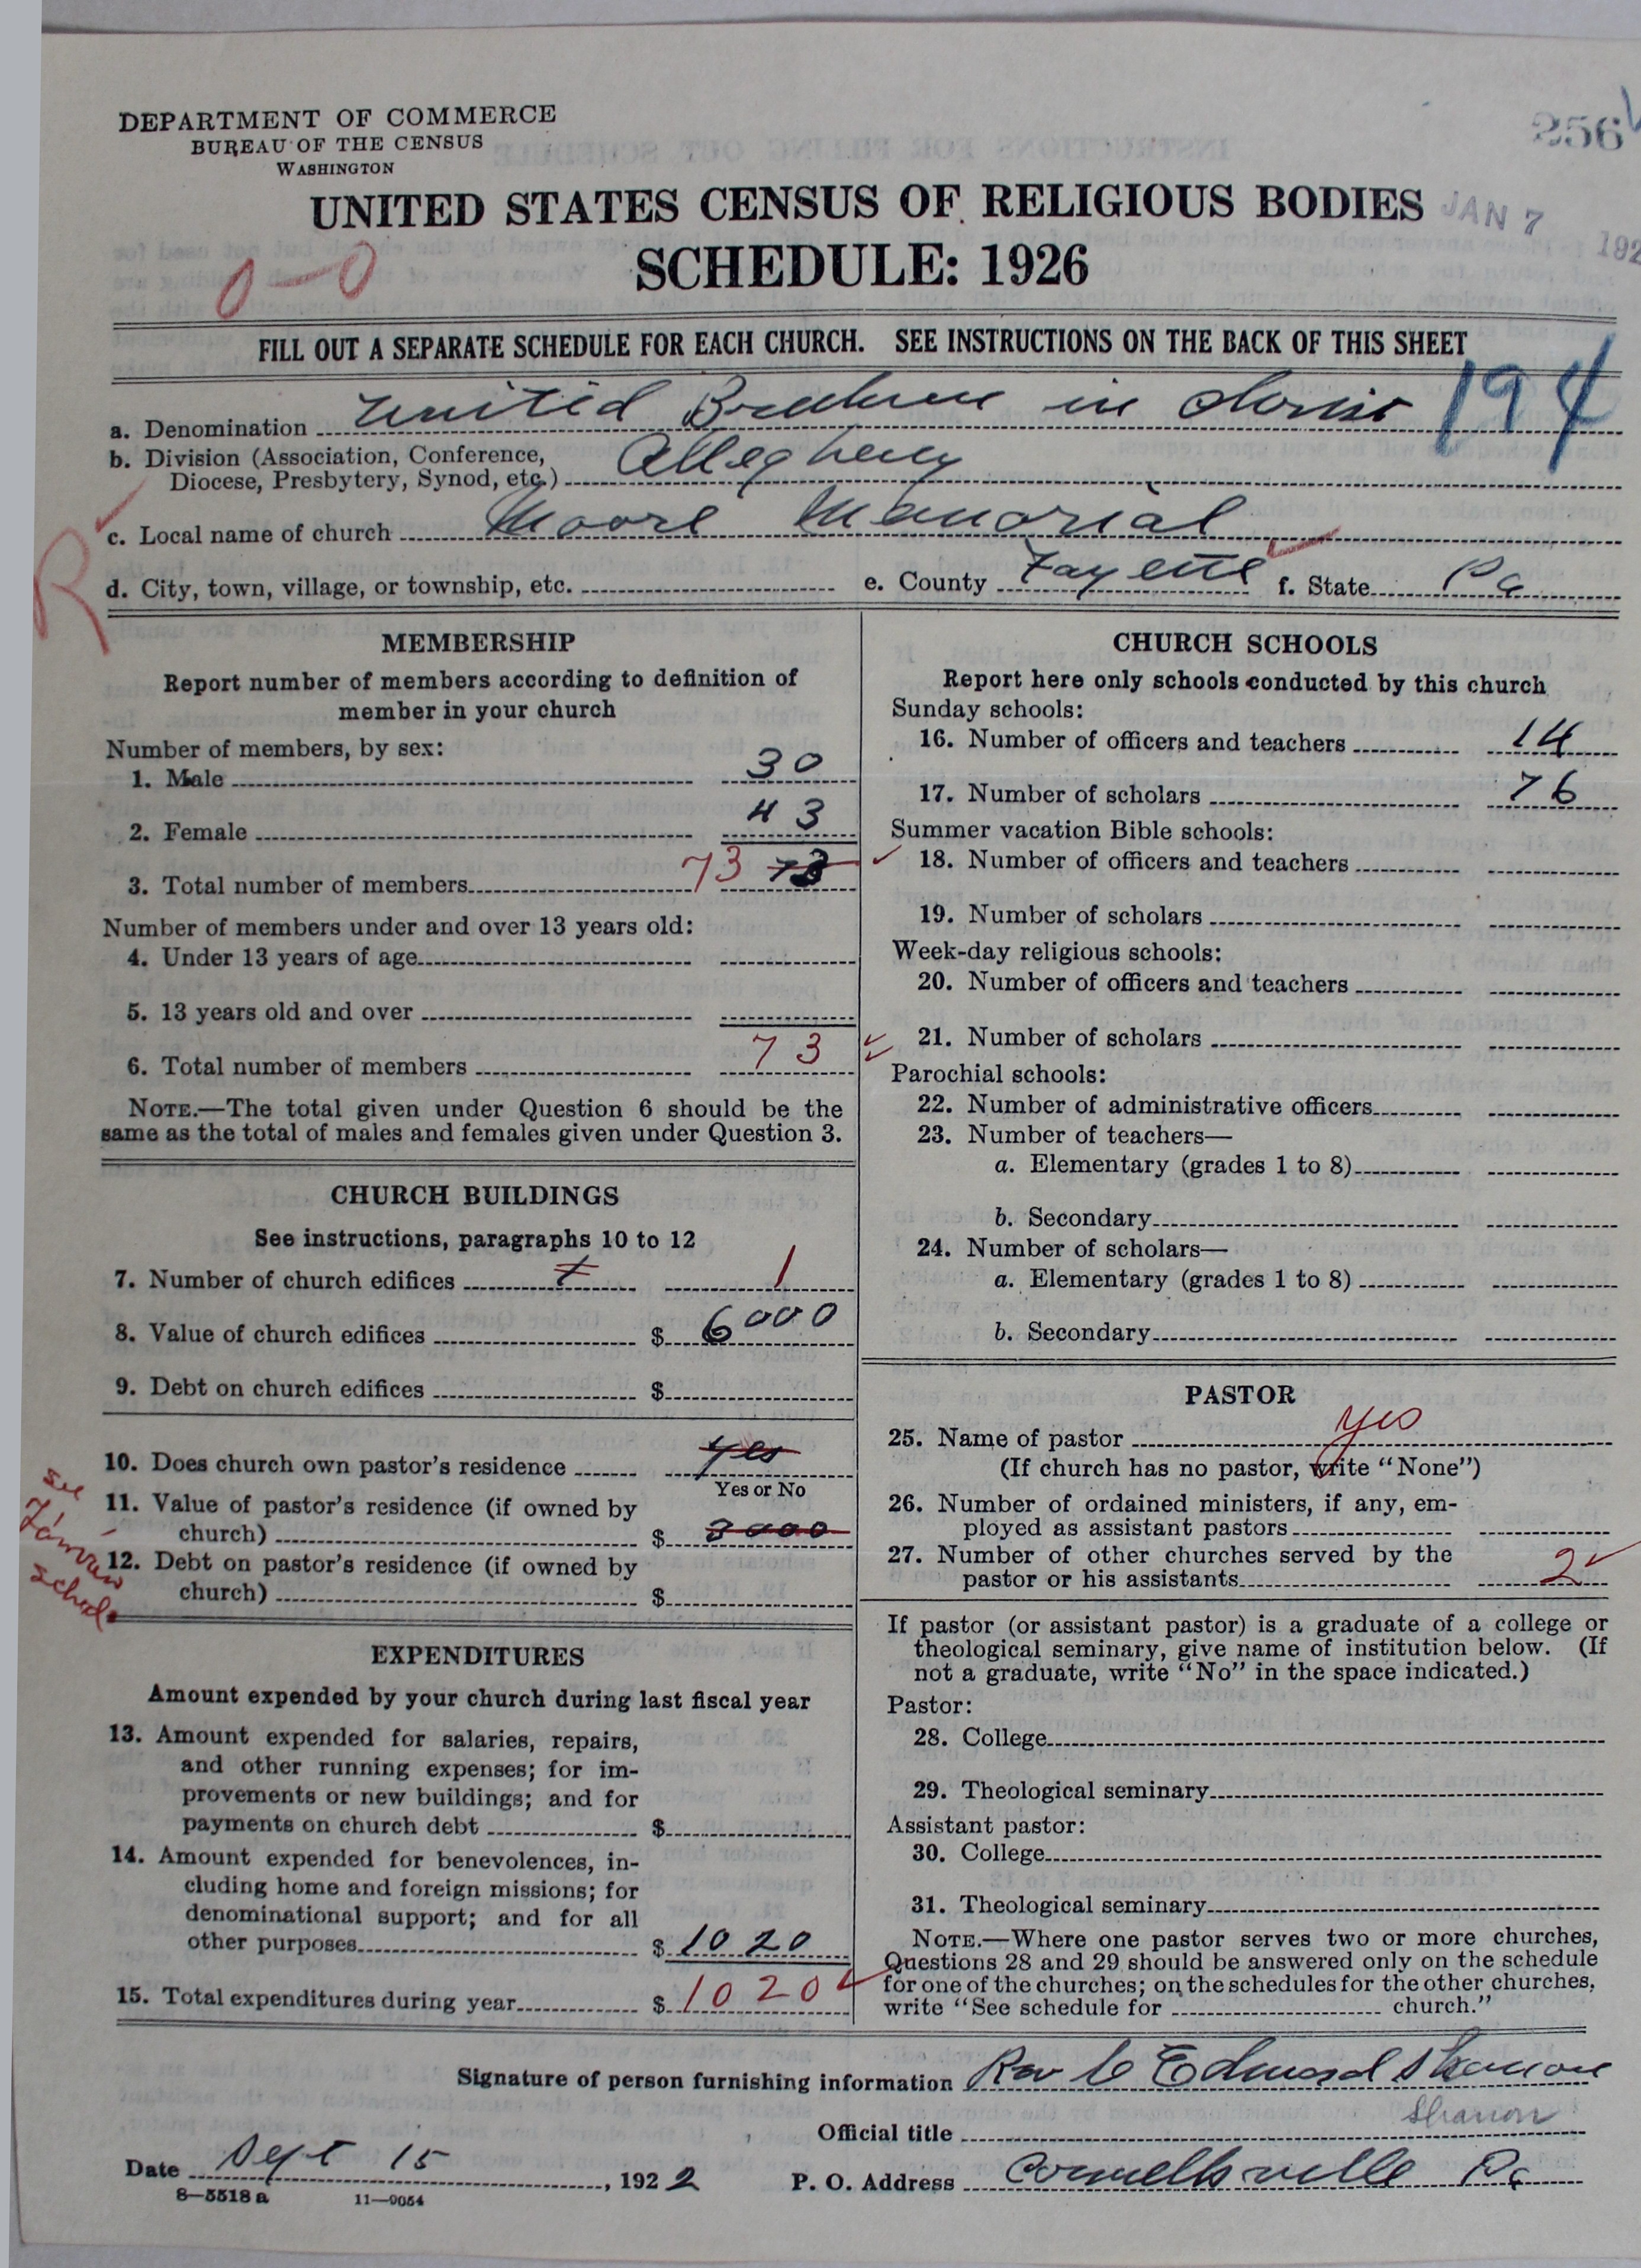 DEPARTMENT OF COMMERCE
BUREAU OF THE CENSUS
WASHINGTON
256
UNITED STATES CENSUS OF RELIGIOUS BODIES
JAN 7 192
SCHEDULE: 1926
0-0
FILL OUT A SEPARATE SCHEDULE FOR EACH CHURCH. SEE INSTRUCTIONS ON THE BACK OF THIS SHEET
194
a. Denomination United Brethren in Christ
b. Division (Association, Conference,
Diocese, Presbytery, Synod, etc.) Allegheny
R
c. Local name of church Moore Memorial
d. City, town, village, or township, etc. e. County Fayette f. State Pa
MEMBERSHIP
Report number of members according to definition of
member in your church
Number of members, by sex:
1. Male 30
2. Female 43
3. Total number of members 73 73
Number of members under and over 13 years old:
4. Under 13 years of age
5. 13 years old and over
6. Total number of members 73
NOTE.—The total given under Question 6 should be the
same as the total of males and females given under Question 3.
CHURCH BUILDINGS
See instructions, paragraphs 10 to 12
7. Number of church edifices 1 1
8. Value of church edifices $ 6000
9. Debt on church edifices $
10. Does church own pastor's residence yes
Yes or No
11. Value of pastor's residence (if owned by
church) $ 3000
12. Debt on pastor's residence (if owned by
church) $
see
sched.
EXPENDITURES
Amount expended by your church during last fiscal year
13. Amount expended for salaries, repairs,
and other running expenses; for im-
provements or new buildings; and for
payments on church debt $
14. Amount expended for benevolences, in-
cluding home and foreign missions; for
denominational support; and for all
other purposes $ 1020
15. Total expenditures during year $ 1020
CHURCH SCHOOLS
Report here only schools conducted by this church
Sunday schools:
16. Number of officers and teachers 14
17. Number of scholars 76
Summer vacation Bible schools:
18. Number of officers and teachers
19. Number of scholars
Week-day religious schools:
20. Number of officers and teachers
21. Number of scholars
Parochial schools:
22. Number of administrative officers
23. Number of teachers—
a. Elementary (grades 1 to 8)
b. Secondary
24. Number of scholars—
a. Elementary (grades 1 to 8)
b. Secondary
PASTOR
25. Name of pastor yes
(If church has no pastor, write "None")
26. Number of ordained ministers, if any, em-
ployed as assistant pastors
27. Number of other churches served by the
pastor or his assistants 2
If pastor (or assistant pastor) is a graduate of a college or
theological seminary, give name of institution below. (If
not a graduate, write "No" in the space indicated.)
Pastor:
28. College
29. Theological seminary
Assistant pastor:
30. College
31. Theological seminary
NOTE.—Where one pastor serves two or more churches,
Questions 28 and 29 should be answered only on the schedule
for one of the churches; on the schedules for the other churches,
write "See schedule for church."
Signature of person furnishing information Rev C Edward Shannon
Shanon
Official title
Date Sept 15, 1922 P. O. Address Connellsville Pa
8—5518 a 11—9054